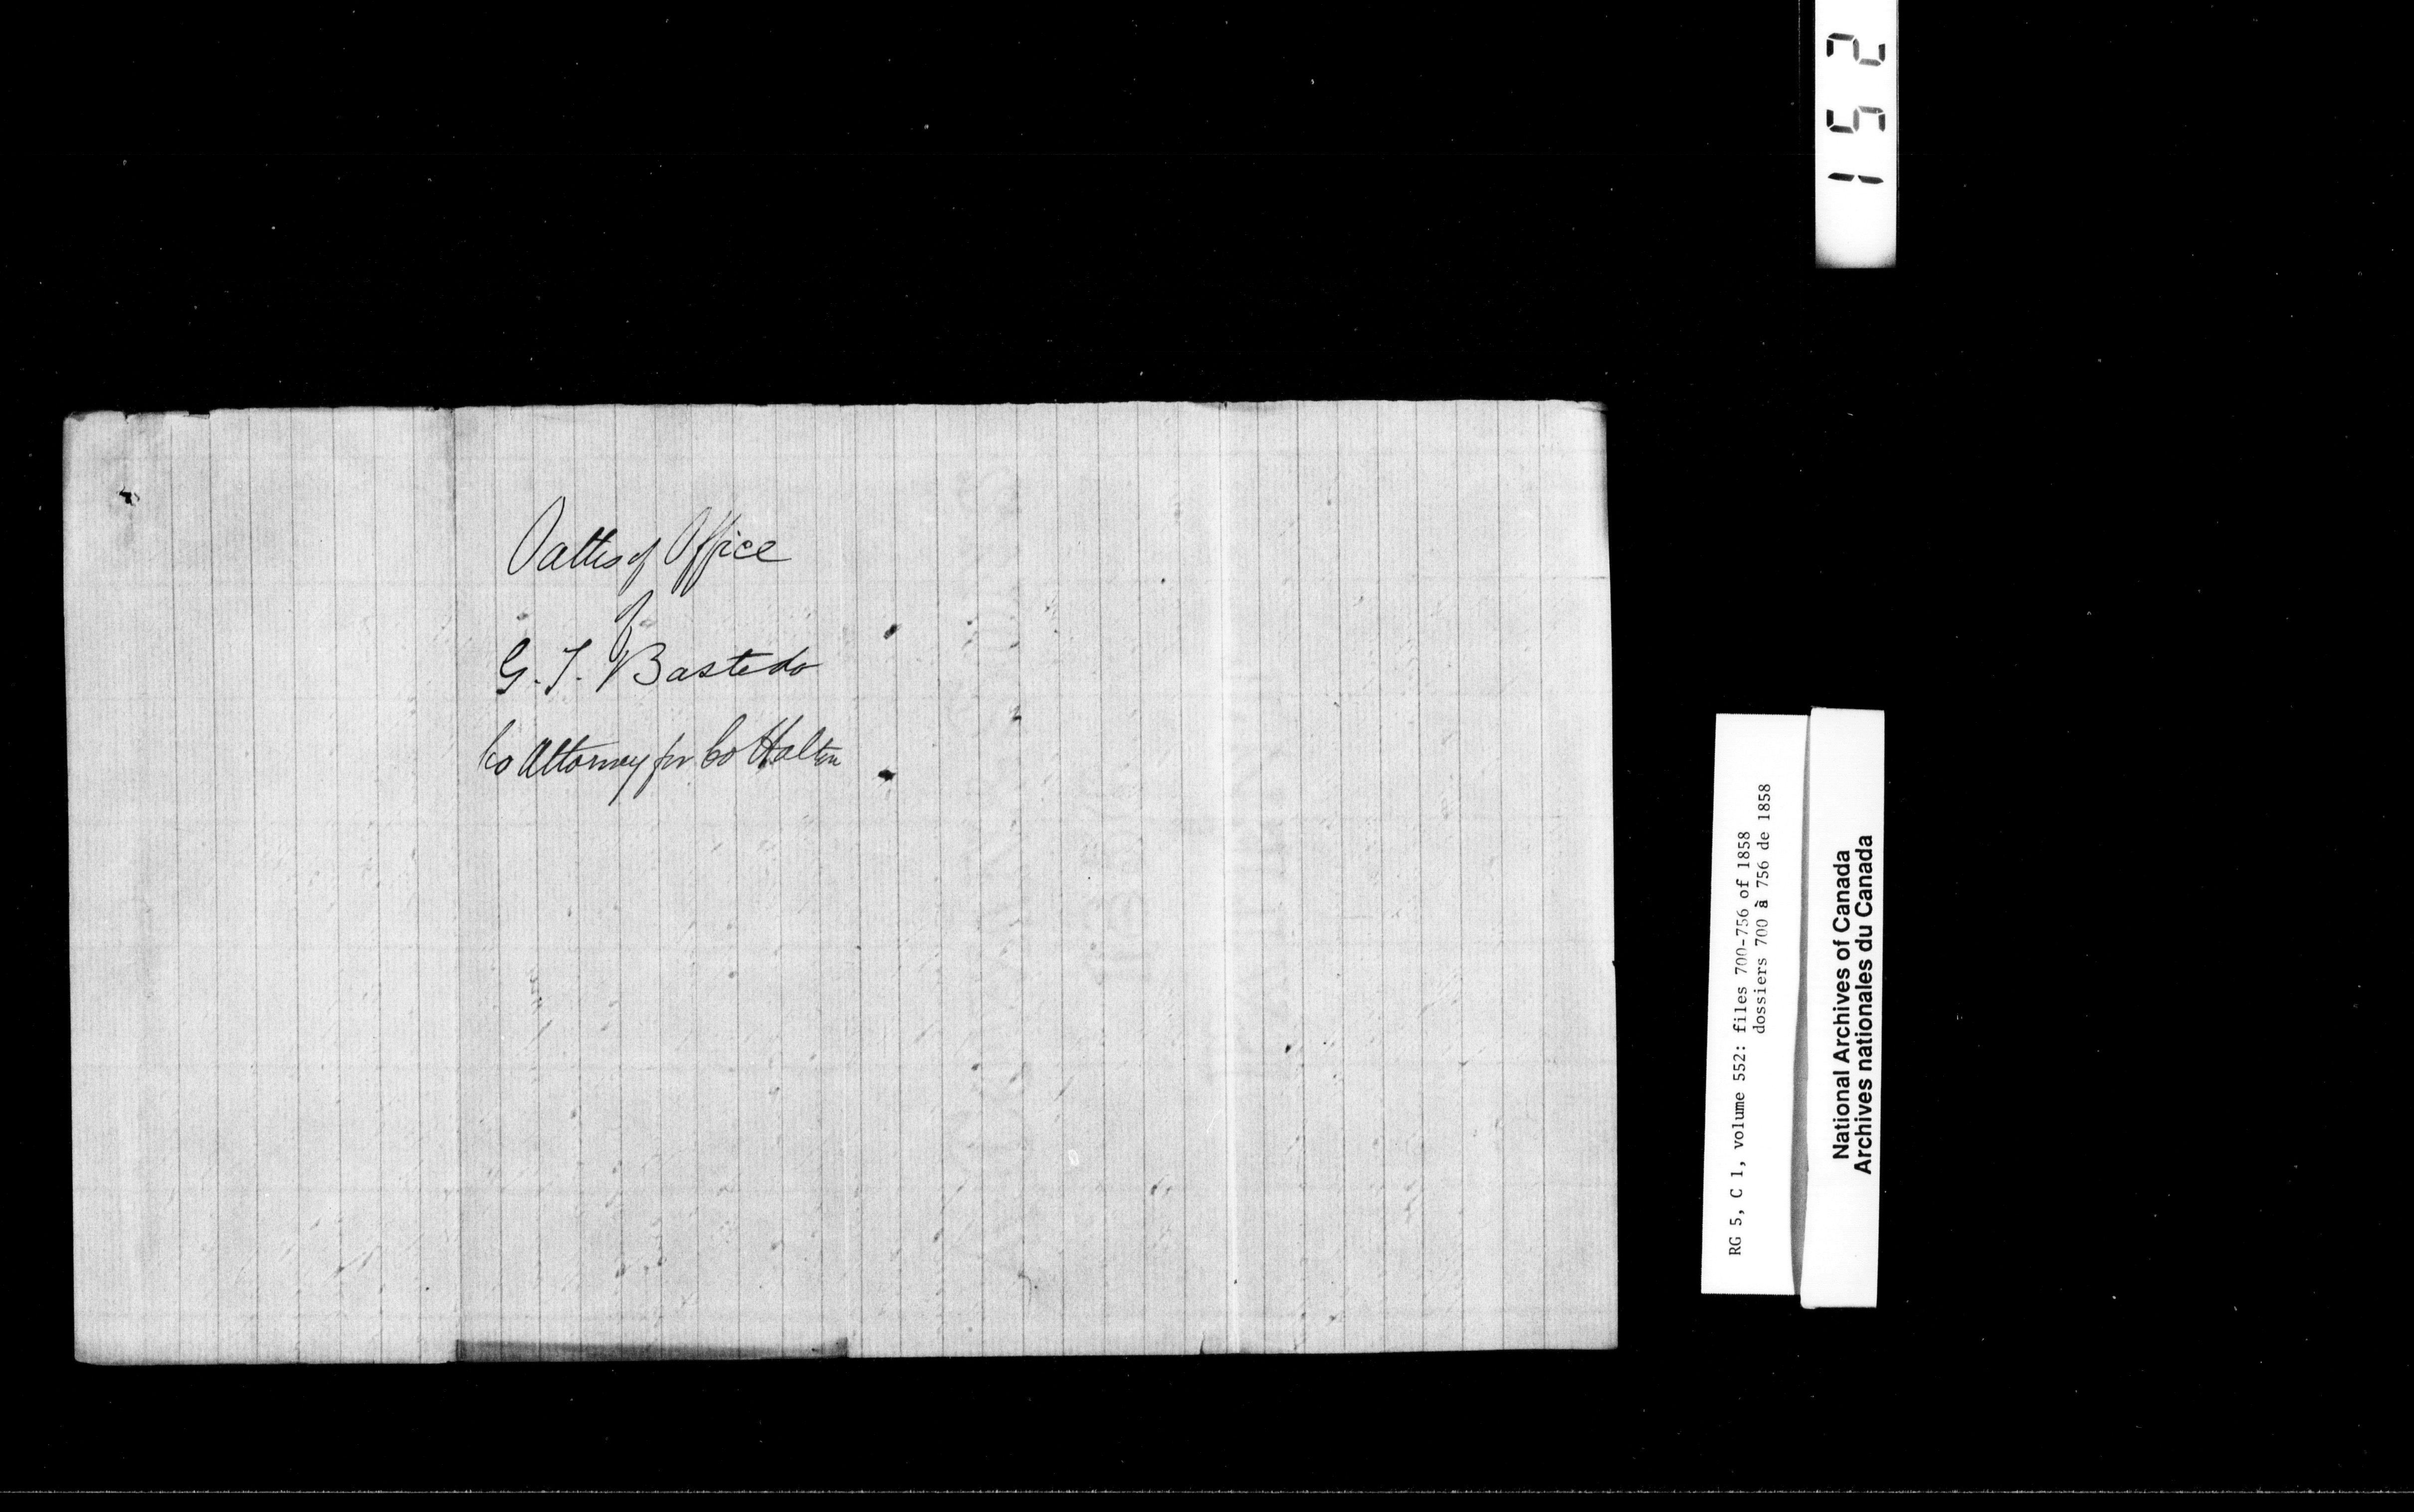 Oaths of Office
of
G. T. Bastedo
Co Attorney for Co Halton
152
RG 5, C 1, volume 552: files 700-756 of 1858
dossiers 700 à 756 de 1858
National Archives of Canada
Archives nationales du Canada